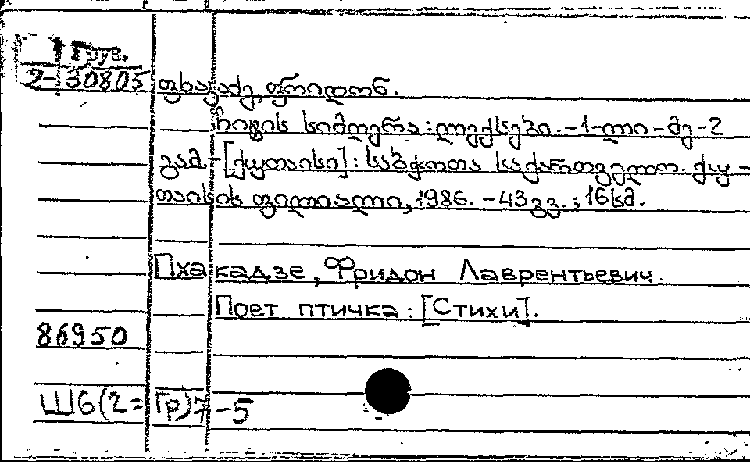 Груз.
2-30805 ფხაკაძე, ფრიდონ.
ჩიტის სიმღერა: ლექსები. -1-ლი-მე-2
გამ. -[ქუთაისი]: საბჭოთა საქართველო. ქუ-
თაისის ფილიალი, 1986. -43გვ.; 16სმ.
Пхакадзе, Фридон Лаврентьевич.
Поет птичка: [Стихи].
86950
Ш6(2=Гр)7-5